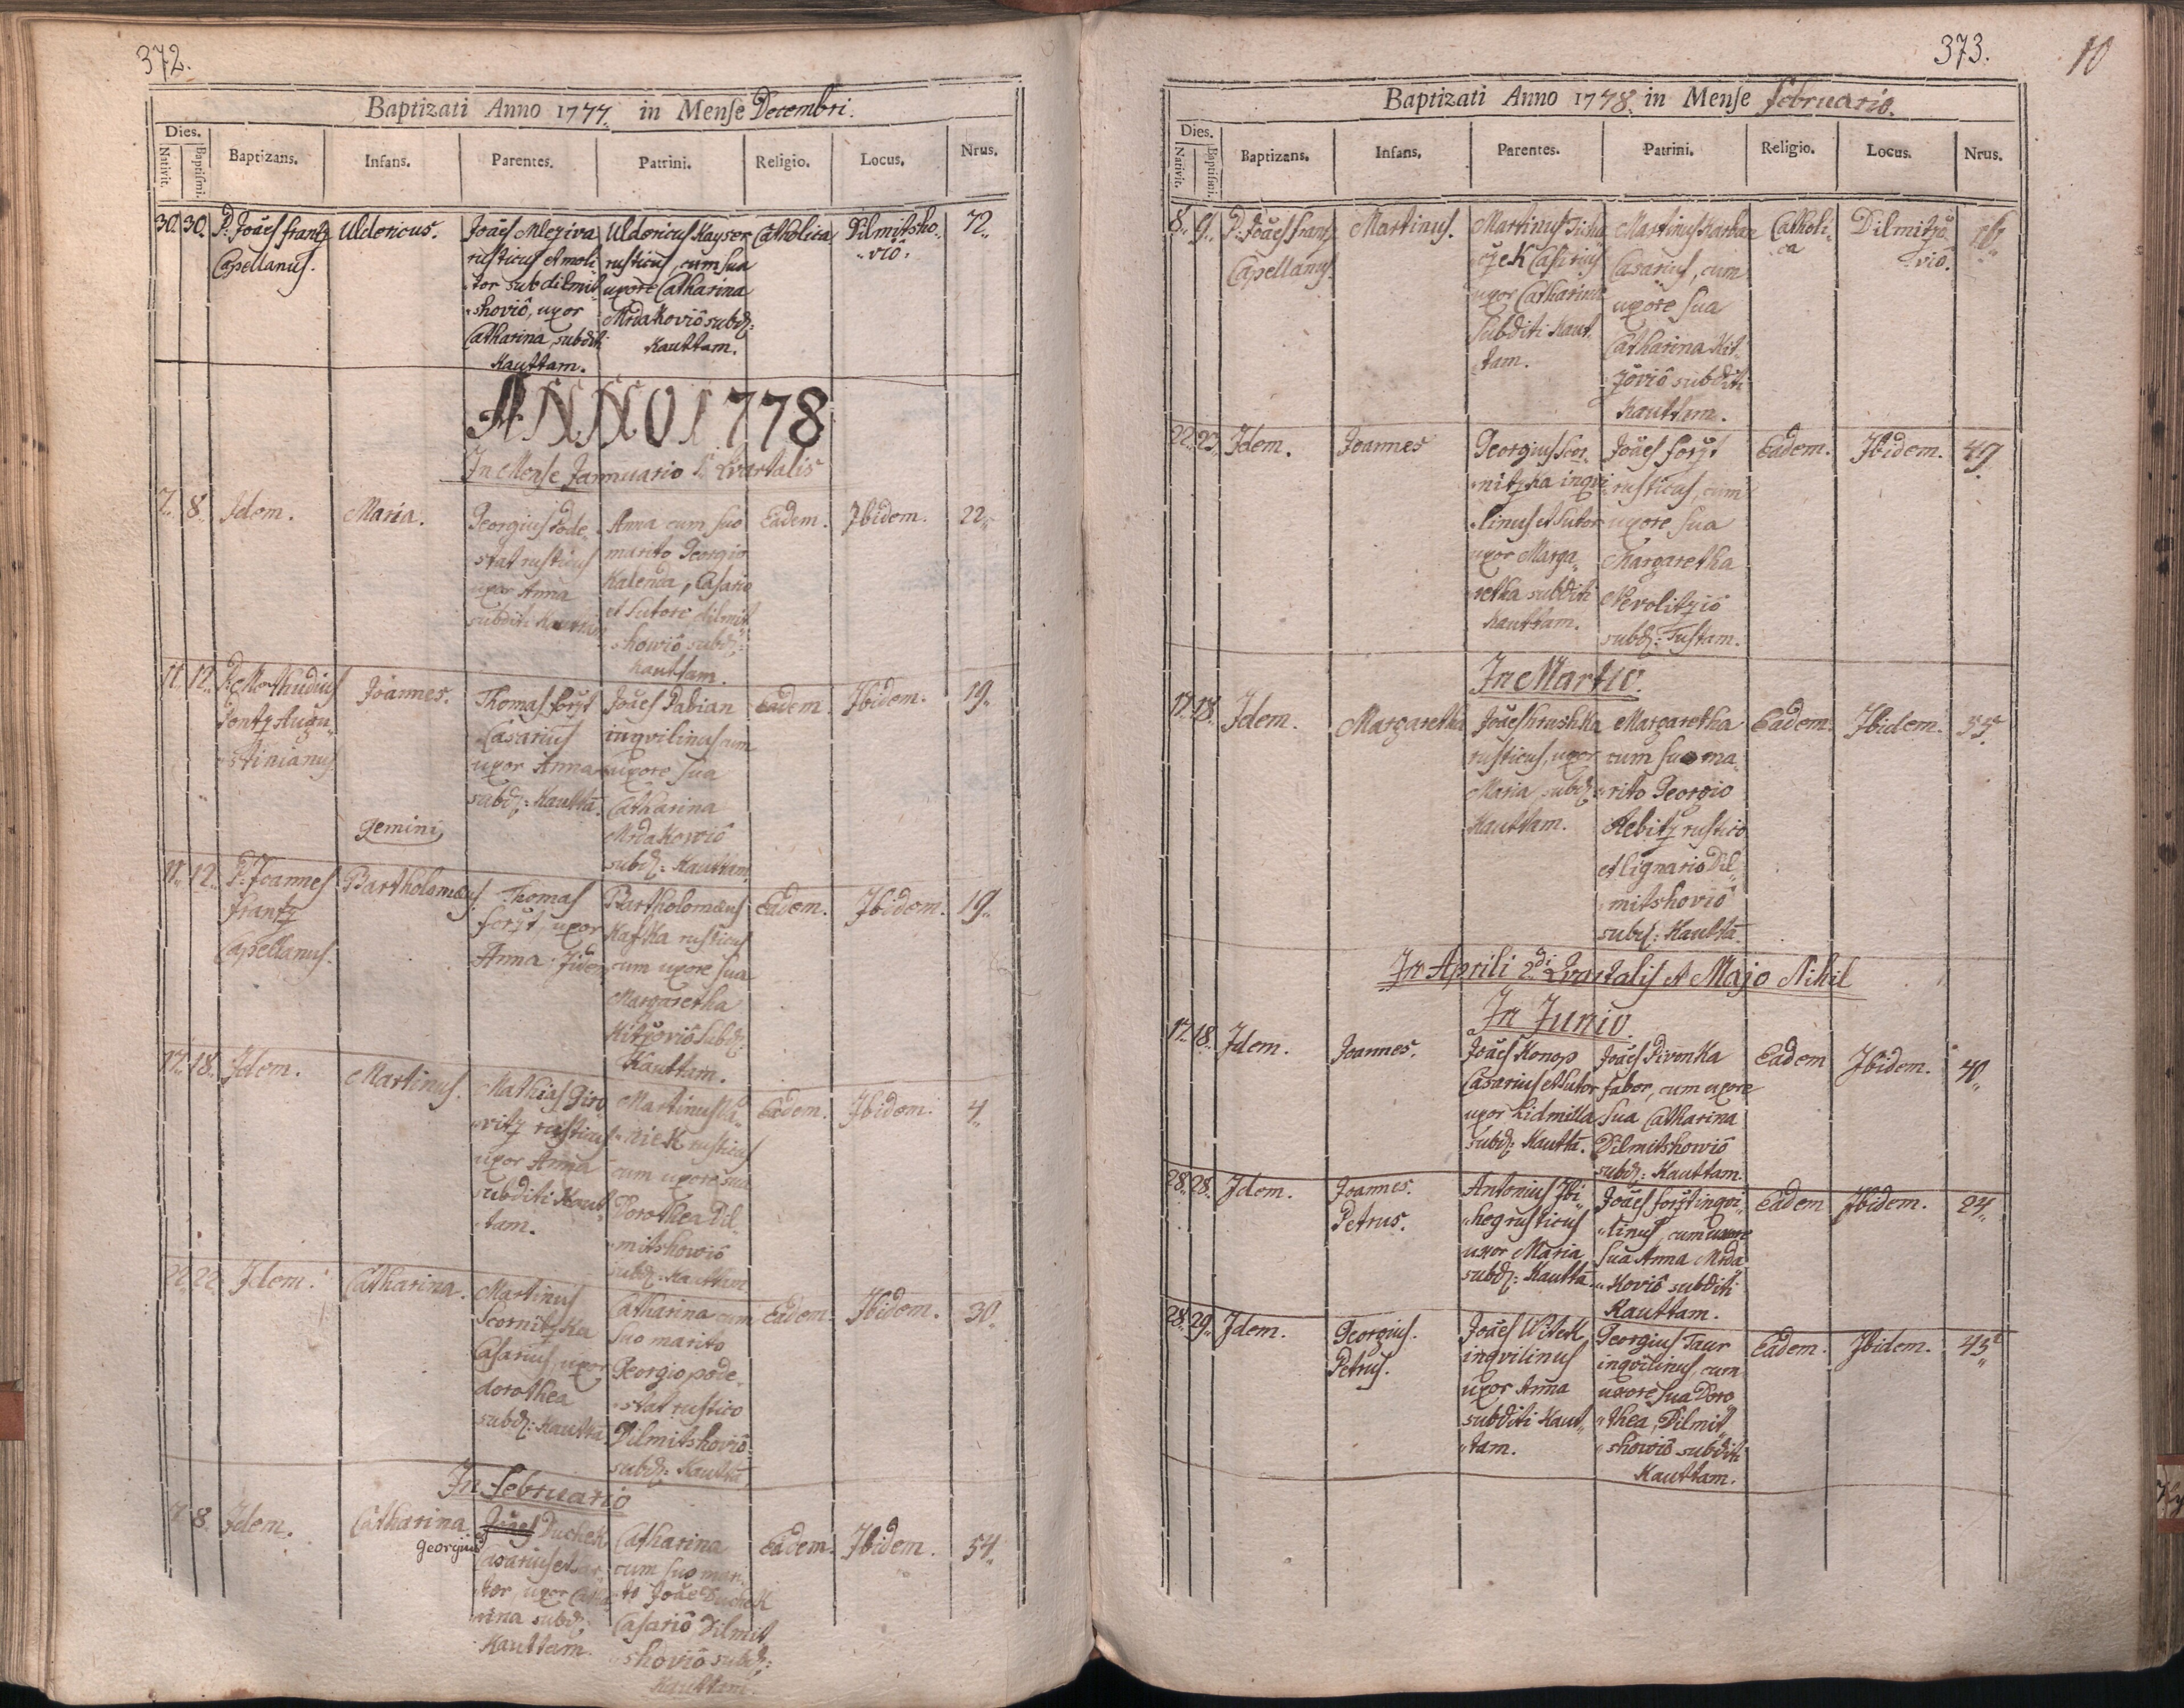 372.
Baptizati Anno 1777. in Mense Decembri.
Dies.
Nativit.
Baptismi.
Baptizans.
Infans.
Parentes.
Patrini.
Religio.
Locus.
Nrus.
30. 30. P: Joaēs frantz
Capellanus.
Uldericus.
Joaēs Mleziva
rusticus et moli
tor sub dilmit
shoviô, uxor
Catharina, subditi
Kauttam.
Uldericus Kayser
rusticus, cum sua
uxore Catharina
MrdaKoviô subd:
Kauttam.
Catholica
Dilmitsho„
„viô.
72„
ANNO 1778
In Mense Jannuario Qvartalis
7„ 8„ Idem.
Maria.
Georgius Pode„
„stat rusticus
uxor Anna
subditi Kauttam
Anna cum suo
marito Georgio
Kalenda, Casario
et Sutore dilmit
showiô subd:
Kauttam.
Eadem.
Ibidem.
22„
11„ 12„
Augu„
„stinianus
Joannes.
Gemini,
Thomas forst
Casarius
uxor Anna
subd: Kauttā.
Joaēs Pabian
inqvilinus cum
uxore sua
Catharina
MrdaKowiô
subd: Kauttam.
Eadem.
Ibidem.
19„
11„ 12„ P: Joannes
frantz
Capellanus.
Bartholomæus
Thomas
forst, uxor
Anna
Bartholomæus
KafKa rusticus
cum uxore sua
Margaretha
subd:
Kauttam.
Eadem.
Ibidem.
19„
17„ 18„ Idem.
Martinus.
Mathias Giro
vitz rusticus
uxor Anna
subditi Kaut„
„tam.
Martinus
rusticus
cum uxore sua
Dorothea Dil„
„mitshowiô
subd: Kauttam
Eadem.
Ibidem.
4„
22„ 22„ Idem.
Catharina.
Martinus
ScornitzKa
Casarius, uxor
dorothea
subd: Kauttā
Catharina cum
suo marito
Georgio pode„
„stat rustico
Dilmitshoviô
subd: Kauttā
Eadem.
Ibidem.
30„
In Februario
7„ 8„ Idem.
Catharina
Joaēs DucheK
georgius
uxor Catha
rina subd:
Kauttam.
Catharina
cum suo mari„
„to Joāe DucheK
Casariô Dilmit
shoviô subd:
Kauttam.
Eadem.
Ibidem.
54„
373.
10
Baptizati Anno 1778. in Mense februario.
Dies.
Nativit.
Baptismi.
Baptizans.
Infans.
Parentes.
Patrini.
Religio.
Locus.
Nrus.
8„ 9„ P: Joaēs frantz
Capellanus
Martinus.
Martinus
Casarius
uxor Catharina
subditi Kaut„
„tam.
Martinus
Casarius, cum
uxore sua
Catharina
subditi
Kauttam.
Catholi„
„ca
viô.
22„ 23„ Idem.
Joannes
Georgius Scor„
„nitzKa inqvi„
„linus et Sutor
uxor Marga„
„retha subditi
Kauttam.
Joaēs forst
rusticus, cum
uxore sua
Margaretha
Nevolitziô
subd: Tustam.
Eadem.
Ibidem.
49.
In Martio.
17„ 18„ Idem.
Margaretha
Joaēs hrushKa
rusticus, uxor
Maria subd:
Kauttam.
Margaretha
cum suo ma„
„rito Georgio
Rebitz rustico
et lignario Dil„
„mitshoviô
subd: Kauttā.
Eadem.
Ibidem.
In Aprili 2di Qvartalis et Majo Nihil
In Junio
17„ 18„ Idem.
Joannes.
Joaēs Konop
Casarius et Sutor
uxor Lidmilla
subd: Kauttā.
Joaēs PivonKa
faber, cum uxore
sua Catharina
Dilmitshowiô
subd: Kauttam.
Eadem
Ibidem.
40„
28„ 28„ Idem.
Joannes.
Petrus.
Antonius Ibi„
„heg rusticus
uxor Maria
subd: Kauttā
Joaēs forst inqvi„
„linus, cum uxore
sua Anna Mrda„
„Koviô subditi
Kauttam.
Eadem
Ibidem.
24„
28„ 29„ Idem.
Georgius.
Petrus.
Joaēs WiteK
inqvilinus
uxor Anna
subditi Kaut„
„tam.
Georgius Taur
inqvilinus, cum
uxore sua Doro„
„thea, Dilmit„
„showiô subditi
Kauttam.
Eadem.
Ibidem.
43„